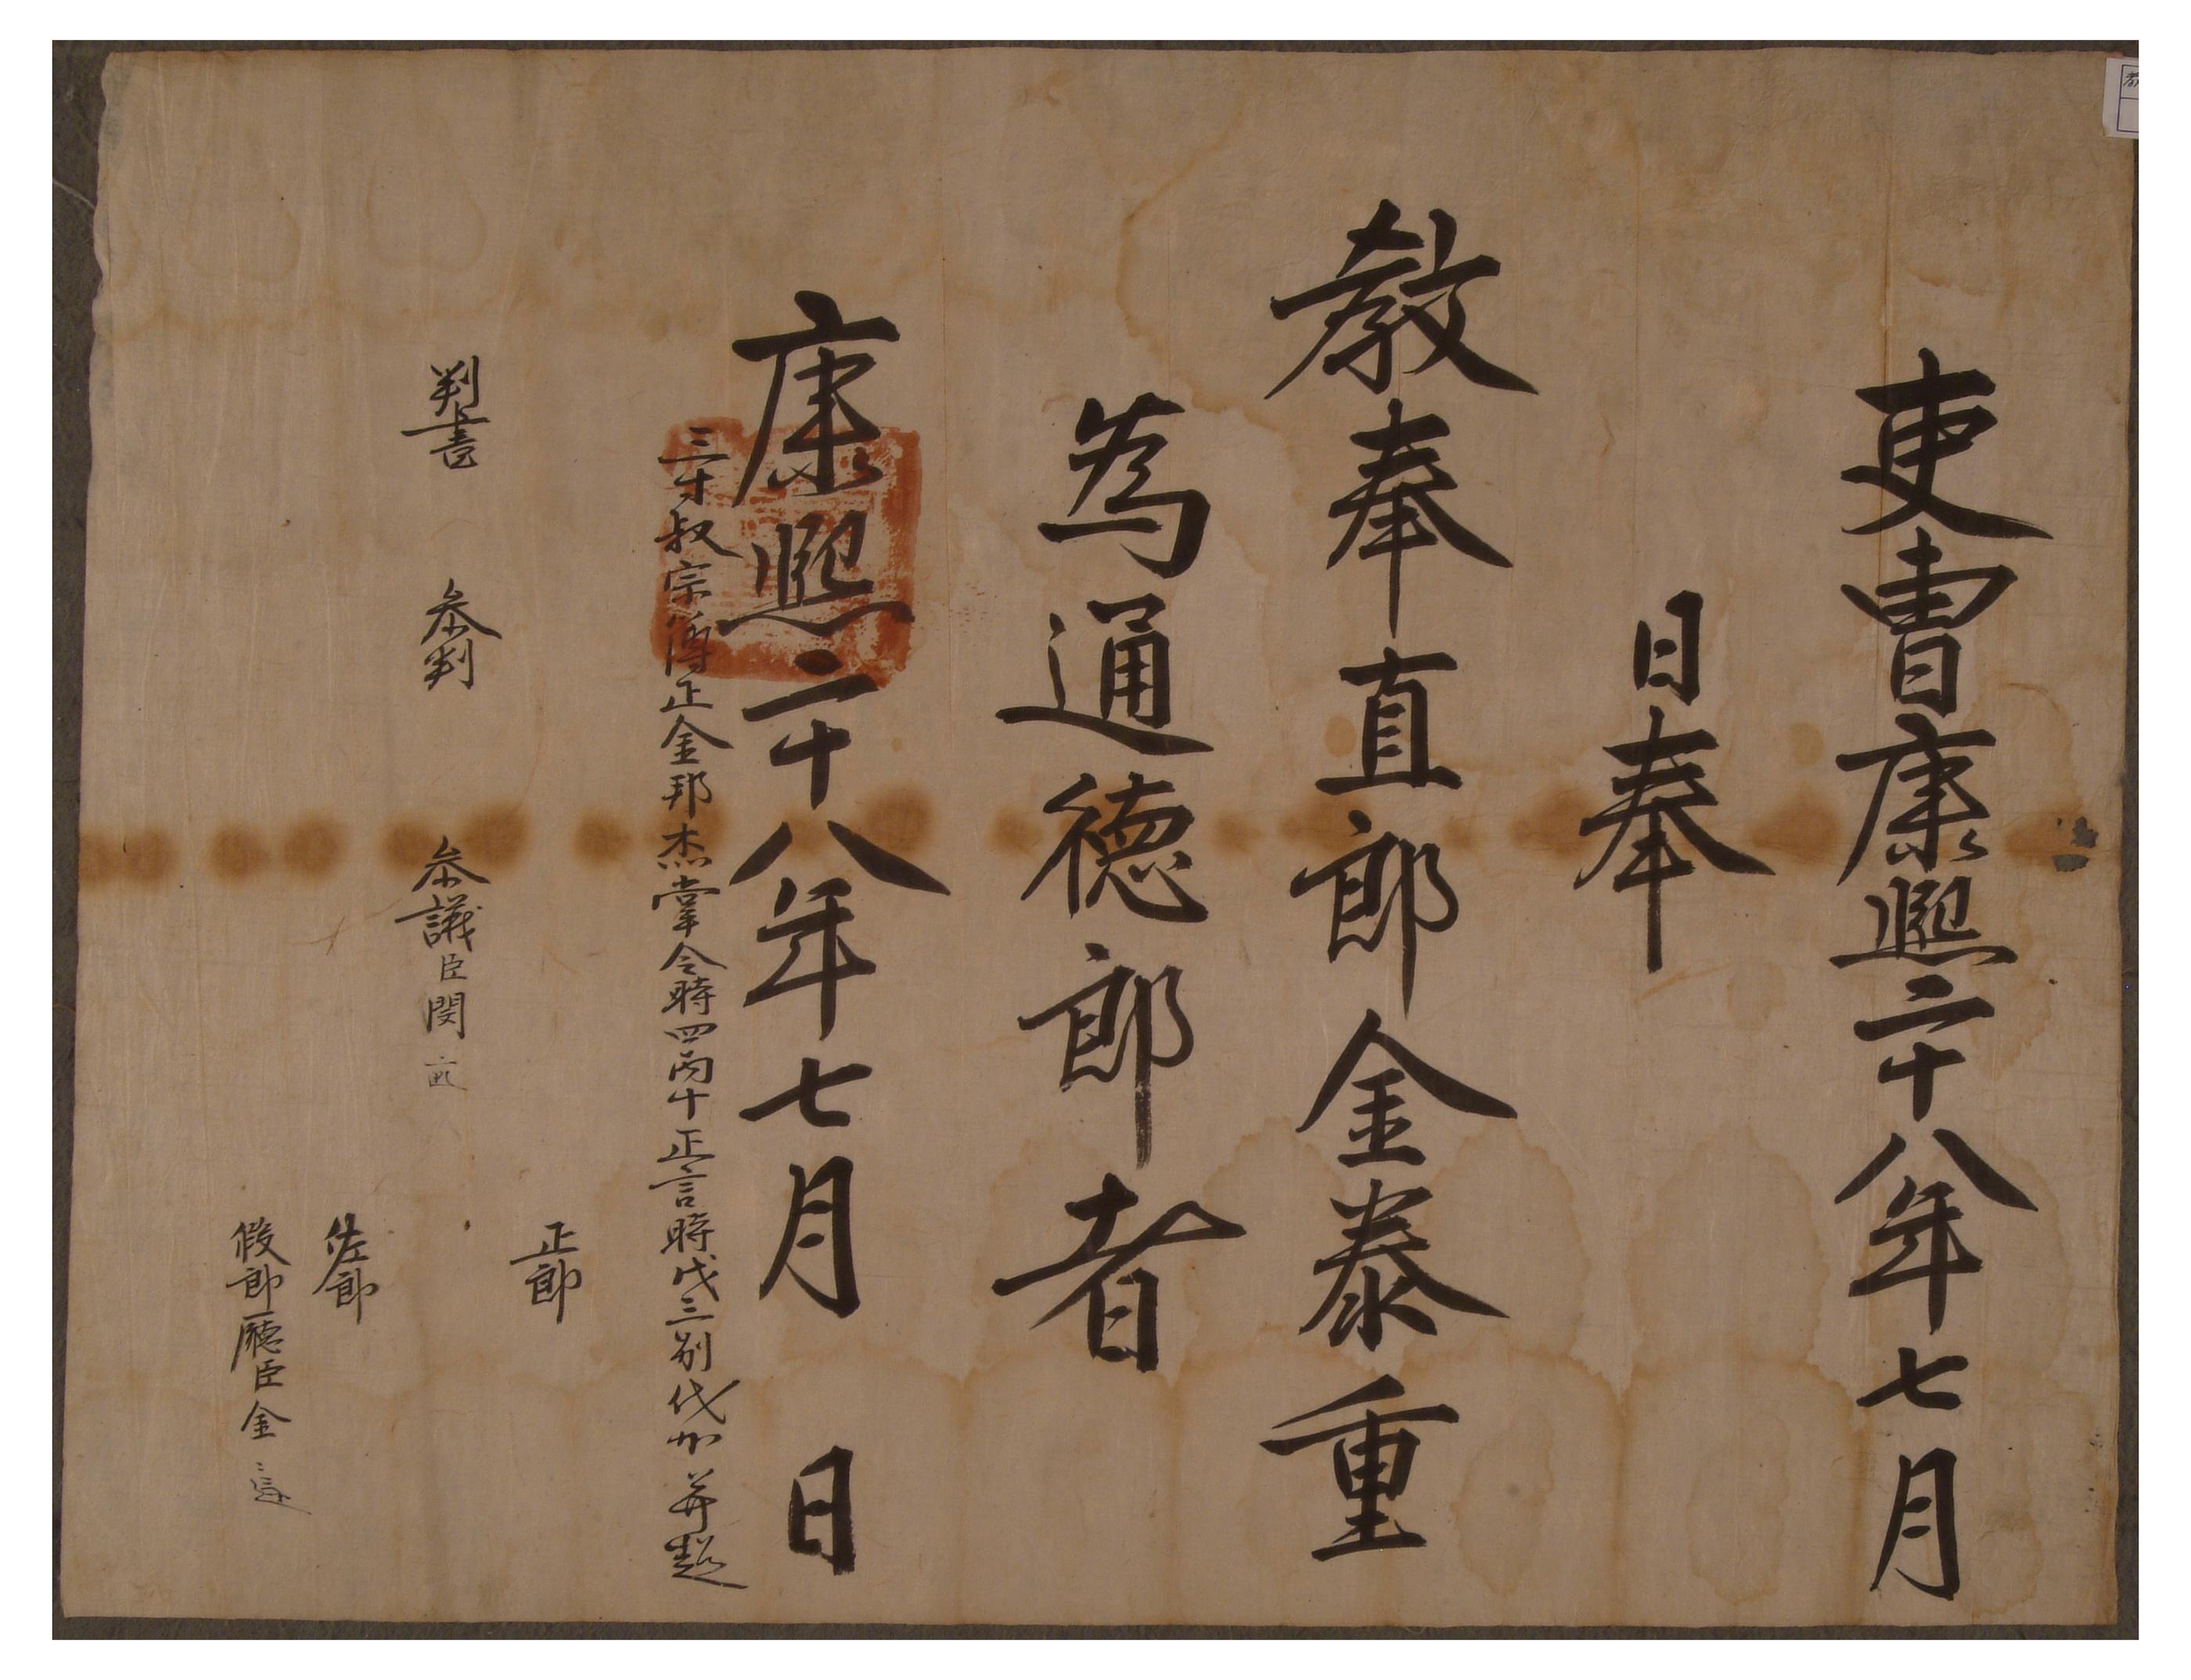 吏曹康熙二十八年七月
日奉
教奉直郎金泰重
為通德郎者
康熙二十八年七月 日
三寸叔宗簿正金邦杰掌令時四丙十正言時戊三別代加并超
正郎
判書 參判 參議臣閔
佐郎
假郎廳臣金